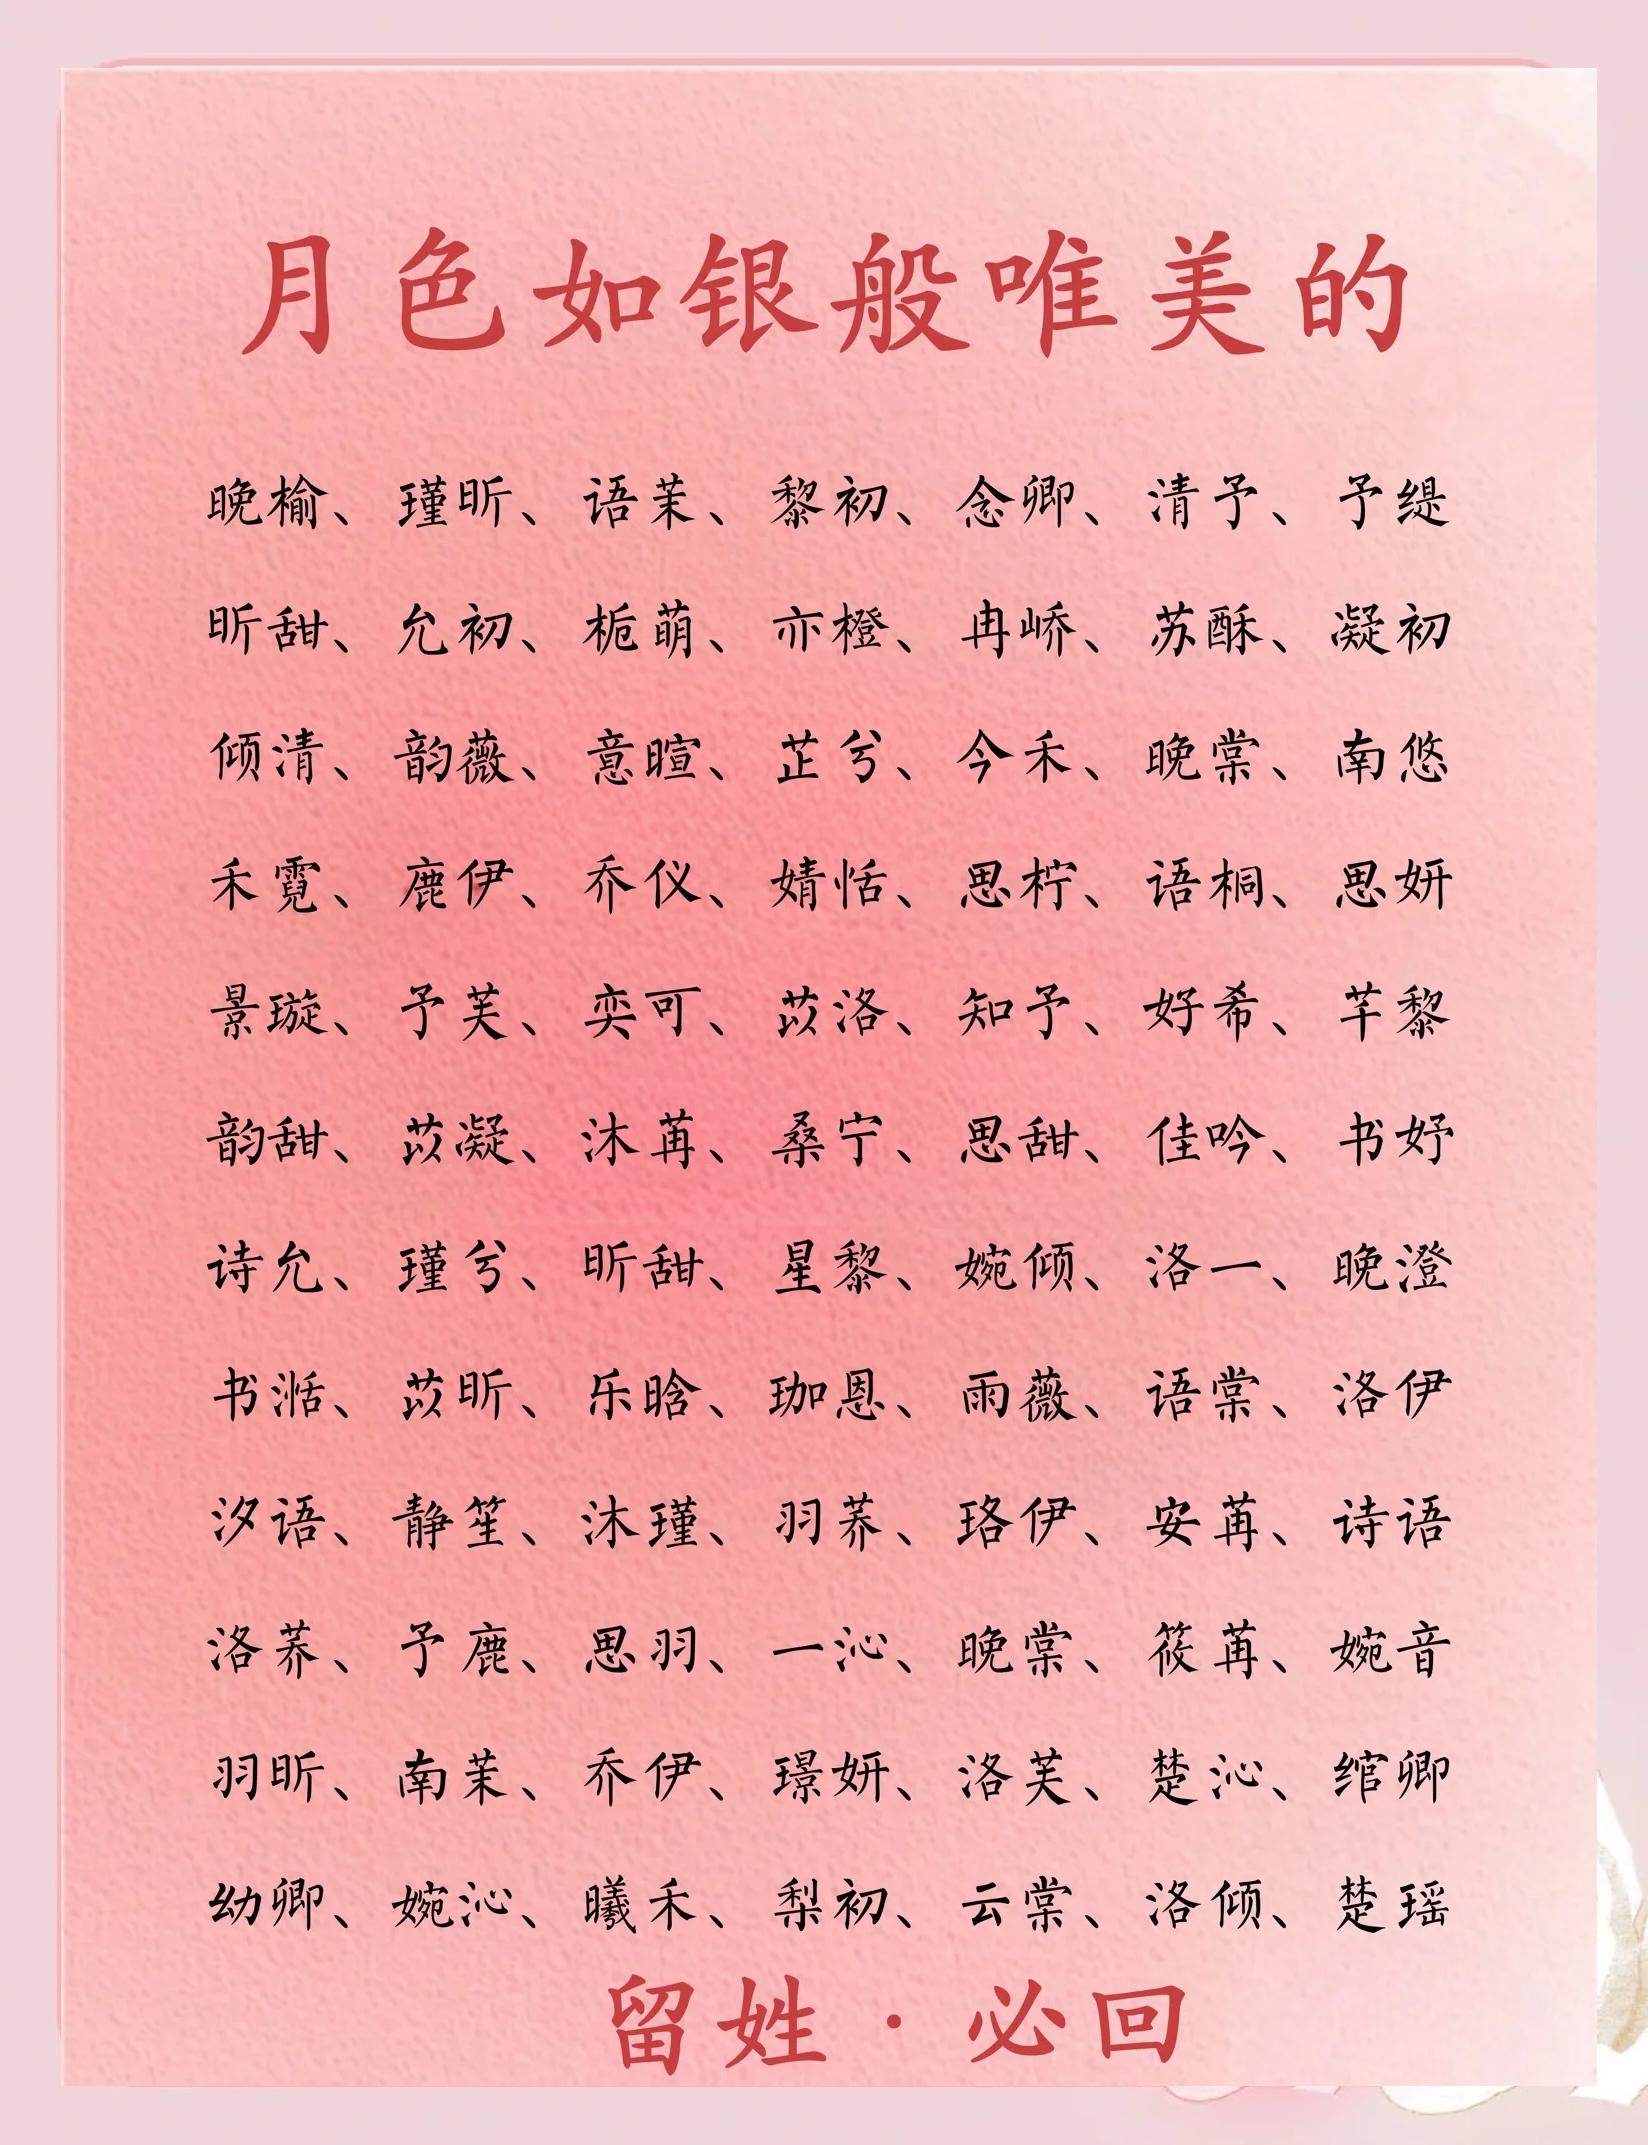 月色如银般唯美的
晚榆、瑾昕、语茉、黎初、念卿、清予、予缇
昕甜、允初、栀萌、亦橙、冉峤、苏酥、凝初
倾清、韵薇、意暄、芷兮、今禾、晚棠、南悠
禾霓、鹿伊、乔仪、婧恬、思柠、语桐、思妍
景璇、予芙、奕可、苡洛、知予、好希、芊黎
韵甜、苡凝、沐苒、桑宁、思甜、佳吟、书妤
诗允、瑾兮、昕甜、星黎、婉倾、洛一、晚澄
书湉、苡昕、乐晗、珈恩、雨薇、语棠、洛伊
汐语、静笙、沐瑾、羽荞、珞伊、安苒、诗语
洛荞、予鹿、思羽、一沁、晚棠、筱苒、婉音
羽昕、南茉、乔伊、璟妍、洛芙、楚沁、绾卿
幼卿、婉沁、曦禾、梨初、云棠、洛倾、楚瑶
留姓·必回